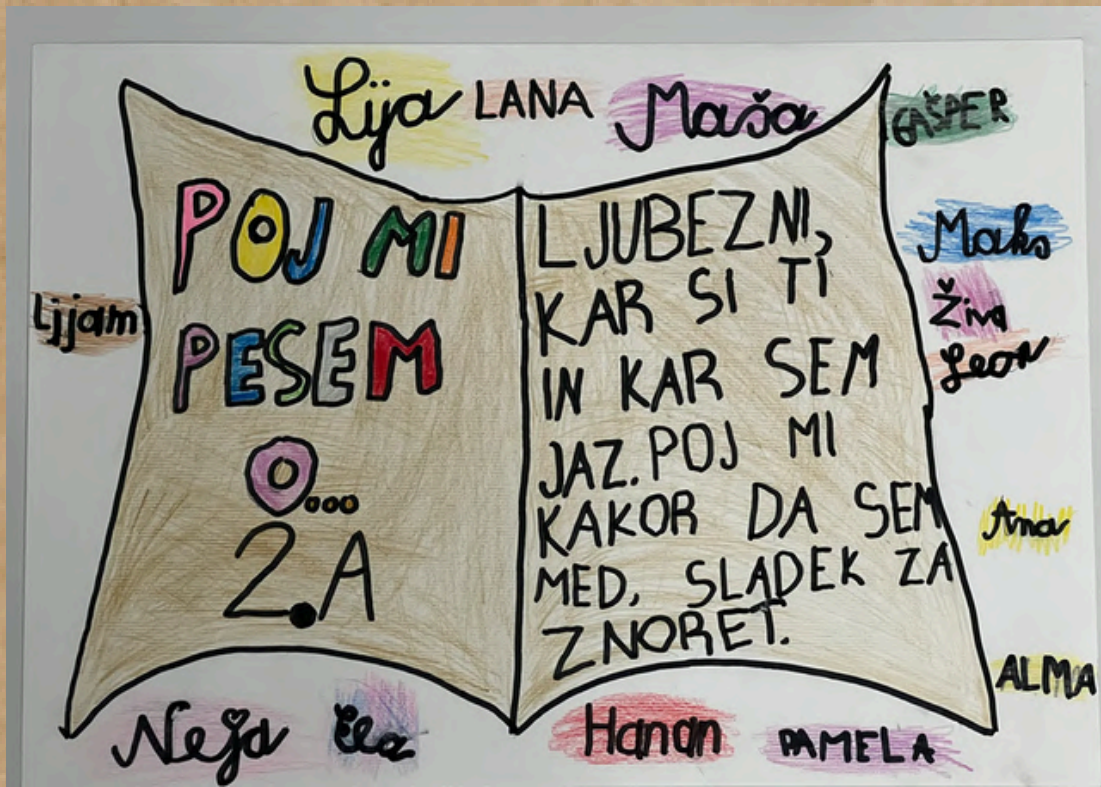 Lija LANA Maša GAŠPER
POJ MI
PESEM
O...
2.A
LJUBEZNI,
KAR SI TI
IN KAR SEM
JAZ. POJ MI
KAKOR DA SEM
MED, SLADEK ZA
ZNORET.
Ljjam
Maks
Živa
Leon
Ana
ALMA
Neža Ela Hanan PAMELA